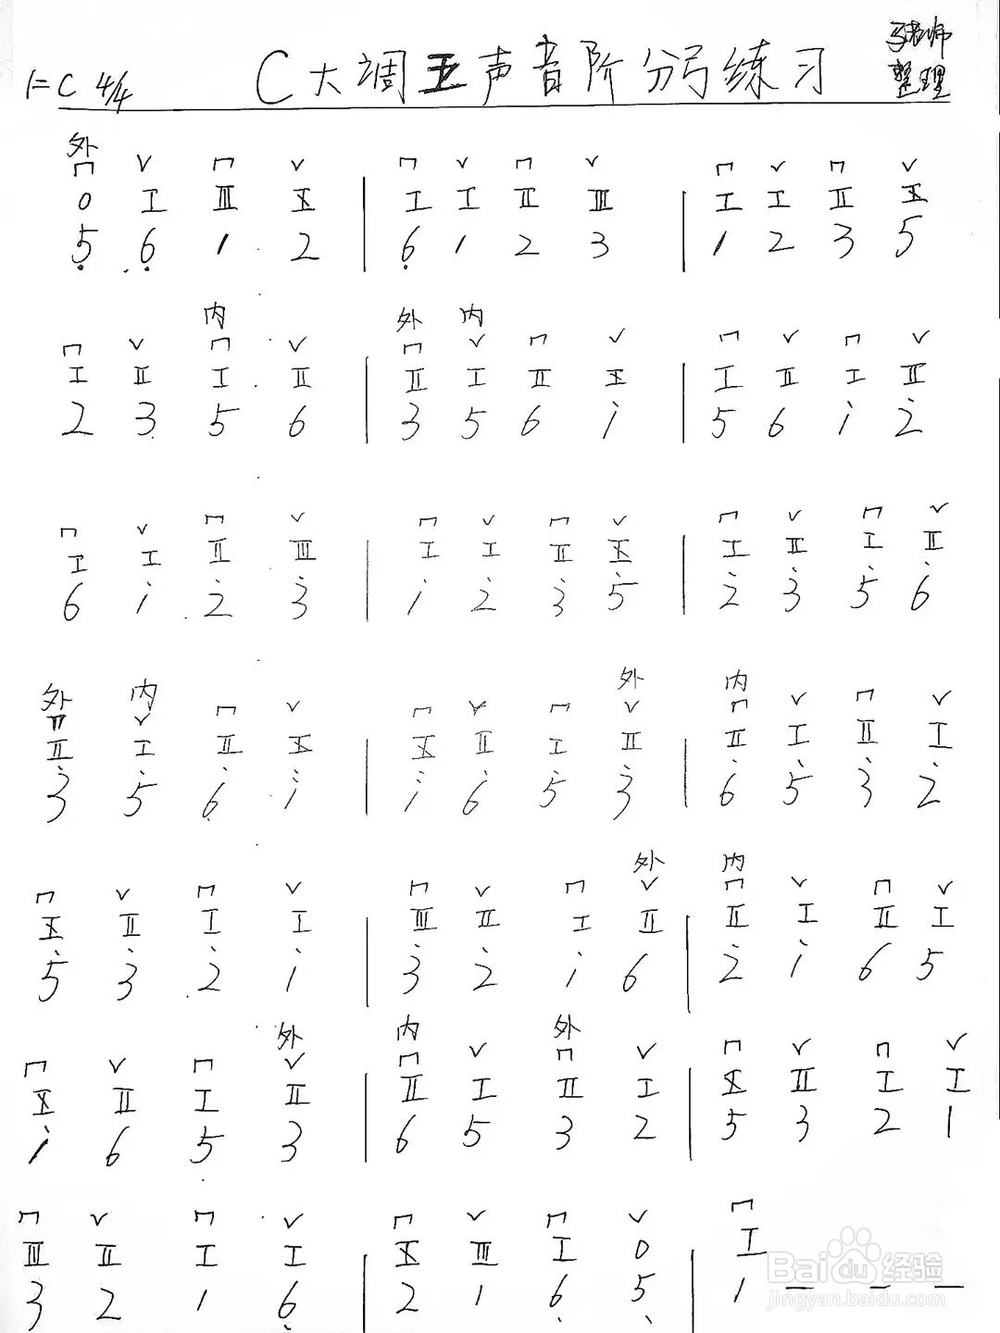 C大调五声音阶分弓练习
1=C 4/4
老师
整理
外
⊓ ∨ ⊓ ∨ | ⊓ ∨ ⊓ ∨ | ⊓ ∨ ⊓ ∨
0 I III X | I I II III | I I II X
5̣ 6̣ 1 2 | 6̣ 1 2 3 | 1 2 3 5
内 外 内
⊓ ∨ ⊓ ∨ | ⊓ ∨ ⊓ ∨ | ⊓ ∨ ⊓ ∨
I II I II | II I II X | I II I II
2 3 5 6 | 3 5 6 1̇ | 5 6 1̇ 2̇
⊓ ∨ ⊓ ∨ | ⊓ ∨ ⊓ ∨ | ⊓ ∨ ⊓ ∨
I I II III | I I II X | I II I II
6 1̇ 2̇ 3̇ | 1̇ 2̇ 3̇ 5̇ | 2̇ 3̇ 5̇ 6̇
外 内 外 内
⊓ ∨ ⊓ ∨ | ⊓ ∨ ⊓ ∨ | ⊓ ∨ ⊓ ∨
II I II X | X II I II | II I II I
3̇ 5̇ 6̇ i | i 6̇ 5̇ 3̇ | 6̇ 5̇ 3̇ 2̇
外 内
⊓ ∨ ⊓ ∨ | ⊓ ∨ ⊓ ∨ | ⊓ ∨ ⊓ ∨
X II I I | III II I II | II I II I
5̇ 3̇ 2̇ 1̇ | 3̇ 2̇ 1̇ 6 | 2̇ 1̇ 6 5
外 内 外
⊓ ∨ ⊓ ∨ | ⊓ ∨ ⊓ ∨ | ⊓ ∨ ⊓ ∨
X II I II | II I II I | X II I I
1̇ 6 5 3 | 6 5 3 2 | 5 3 2 1
⊓ ∨ ⊓ ∨ | ⊓ ∨ ⊓ ∨ | ⊓
III II I I | X III I 0 | I
3 2 1 6̣ | 2 1 6̣ 5̣ | 1 — — —
Baidu 经验
jingyan.baidu.com